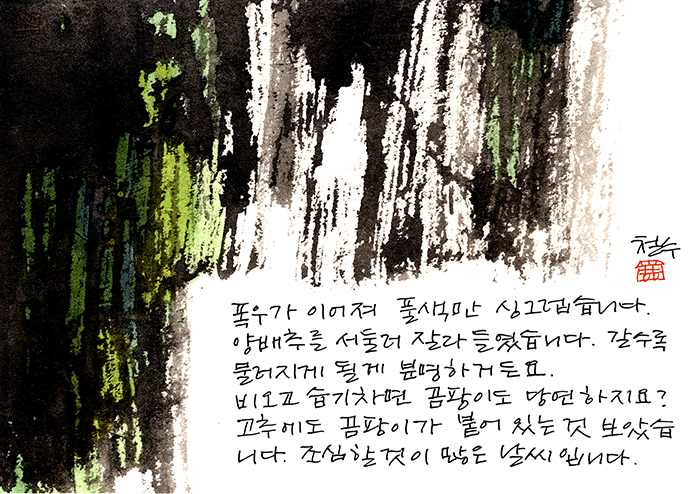 철수
폭우가 이어져 풀색만 싱그럽습니다.
양배추를 서둘러 잘라 들였습니다. 갈수록
물러지게 될게 분명하거든요.
비오고 습기차면 곰팡이도 당연하지요?
고추에도 곰팡이가 붙어 있는것 보았습
니다. 조심할것이 많은 날씨입니다.